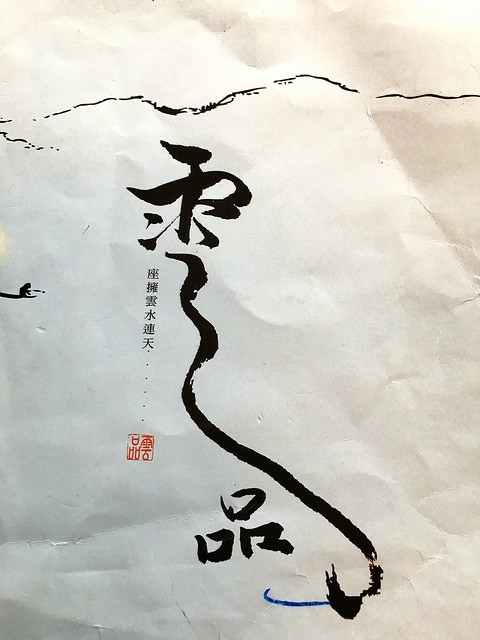 雲品
座擁雲水連天......
雲品